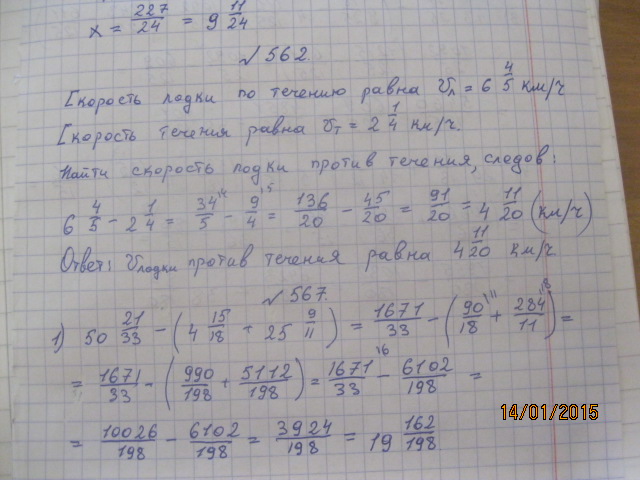 x = 227/24 = 9 11/24
№ 562.
Скорость лодки по течению равна Vл = 6 4/5 км/ч
Скорость течения равна Vт = 2 1/4 км/ч.
Найти скорость лодки против течения, следов:
6 4/5 - 2 1/4 = 34/5 \4 - 9/4 \5 = 136/20 - 45/20 = 91/20 = 4 11/20 (км/ч)
Ответ: Vлодки против течения равна 4 11/20 км/ч
№ 567.
1) 50 21/33 - (4 15/18 + 25 9/11) = 1671/33 - (90/18 \11 + 284/11 \18) =
= 1671/33 - (990/198 + 5112/198) = 1671/33 \6 - 6102/198 =
= 10026/198 - 6102/198 = 3924/198 = 19 162/198
14/01/2015